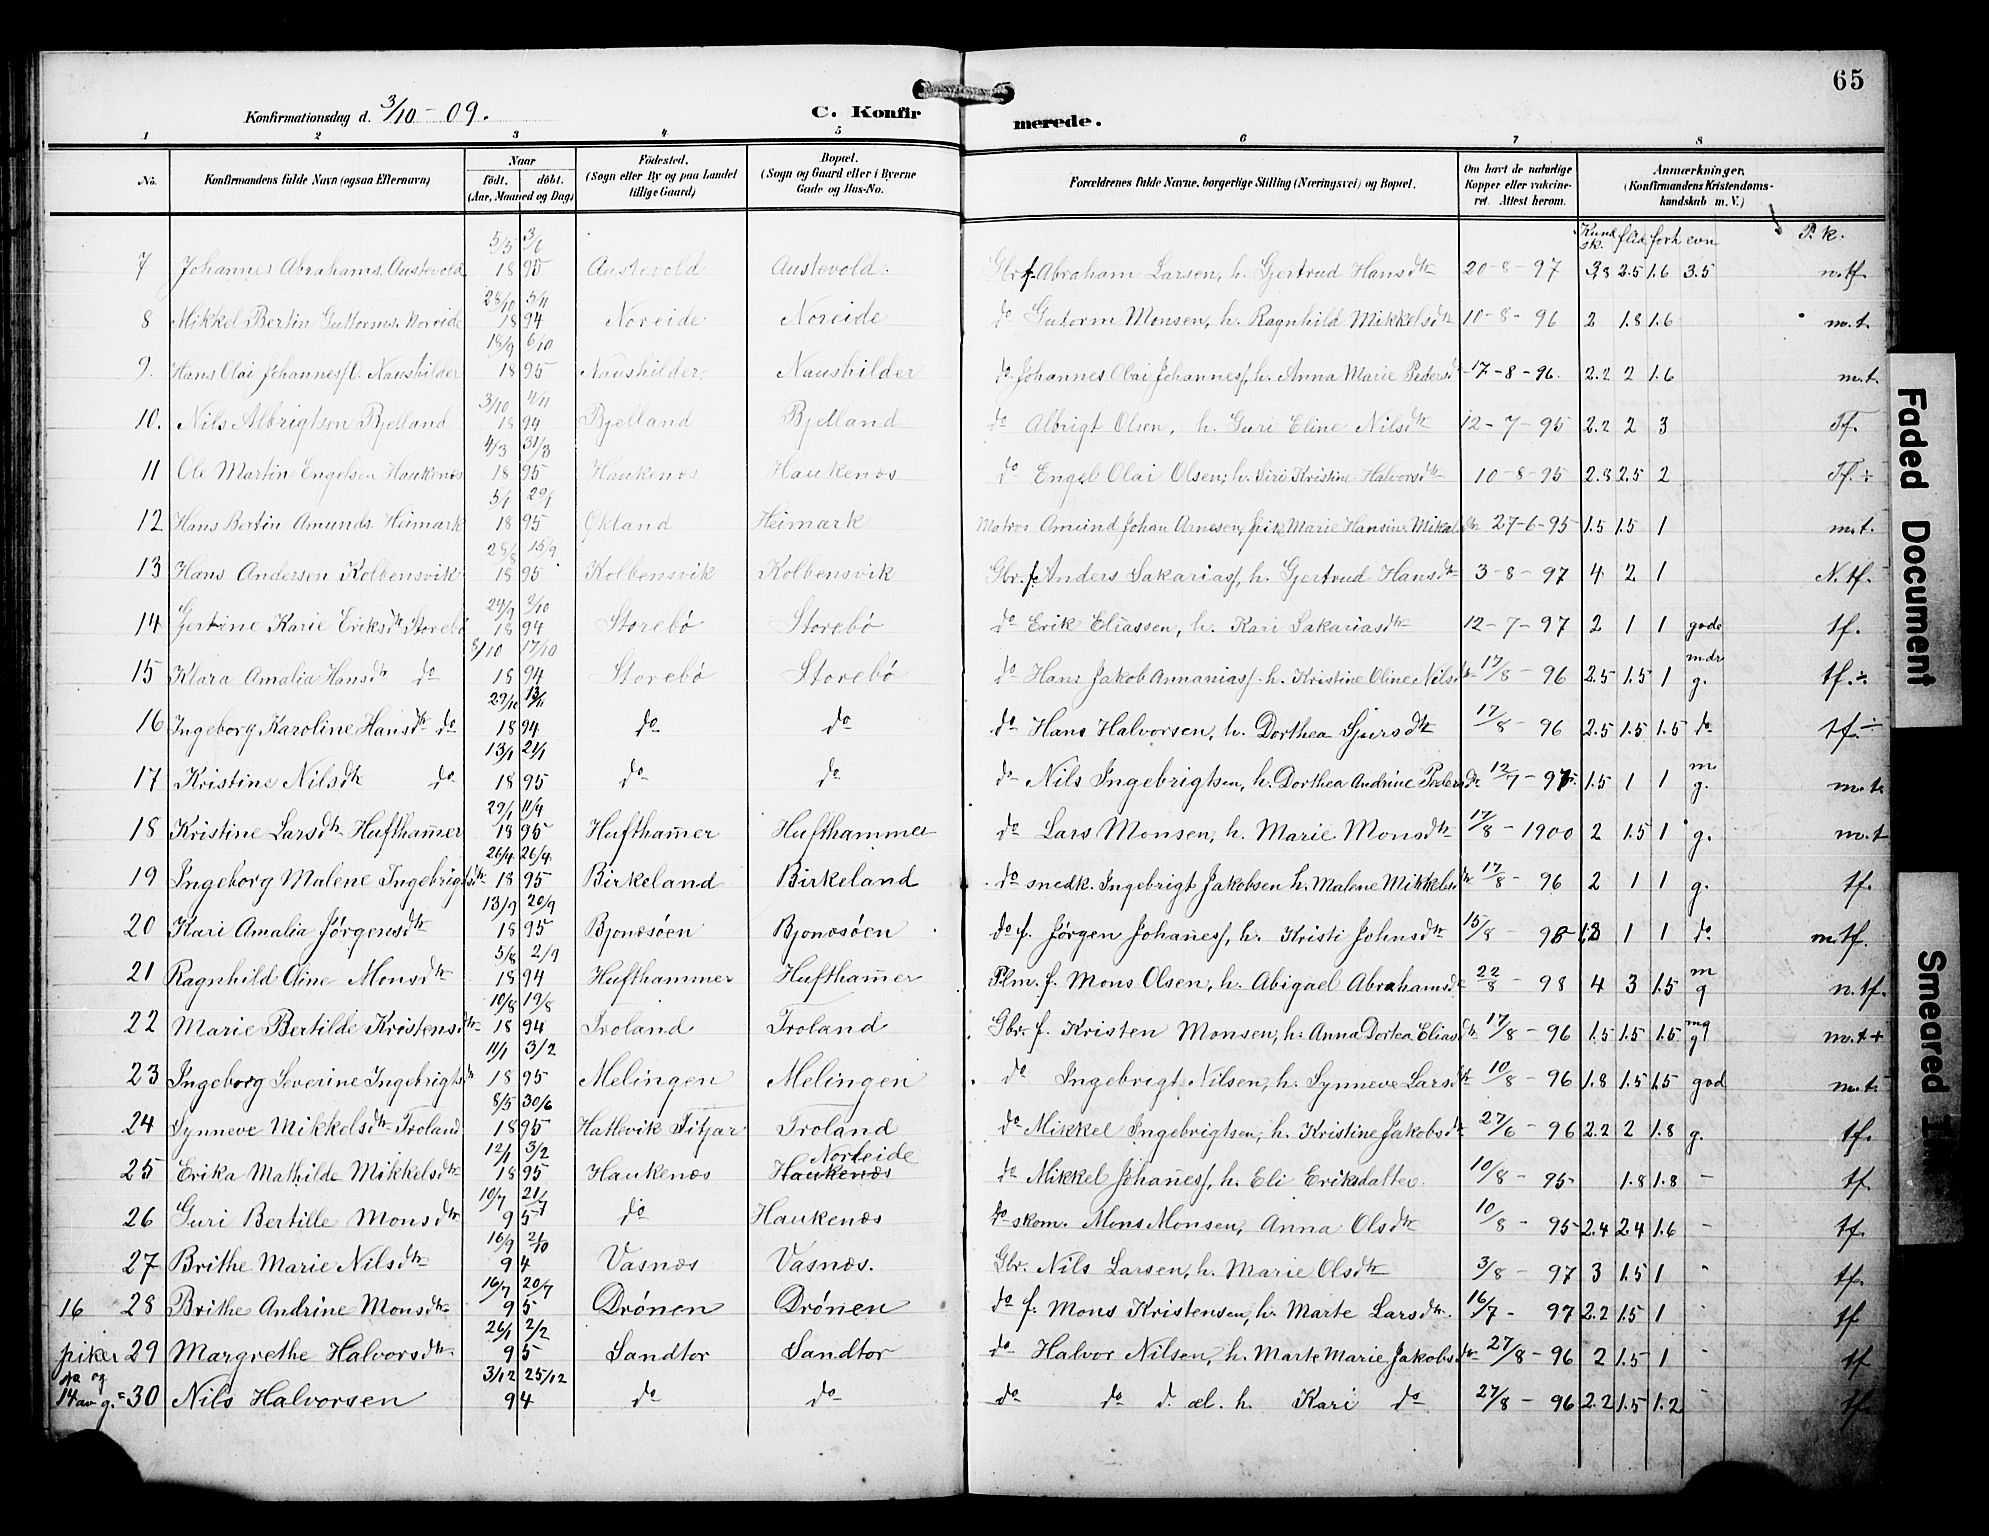 65
Konfirmationsdag d. 3/10 - 09.
C. Konfirmerede.
1 2 3 4 5 6 7 8
No. Konfirmandens fulde Navn (ogsaa Efternavn) Naar født. døbt. (Aar, Maaned og Dag) Fødested. (Sogn eller By og paa Landet tillige Gaard) Bopæl. (Sogn og Gaard eller i Byerne Gade og Hus-No. Forældrenes fulde Navne, borgerlige Stilling (Næringsvei) og Bopæl. Om havt de naturlige Kopper eller vakcineret. Attest herom. Anmærkninger. (Konfirmandens Kristendomskundskab m. V.)
Kundsk. flid forh evn P.k.
7 Johannes Abrahams. Austevold 5/5 3/6 1895 Austevold Austevold. Gbr f. Abraham Larsen, h. Gjertrud Hansdtr 20-8-97 2.5 1.6 3.5 n.tf.
8 Mikkel Bertin Guttorms. Noreide 28/10 5/11 1894 Noreide Noreide do Gutorm Monsen, h. Ragnhild Mikkelsdtr 10-8-96 2 1.8 1.6 m.t.
9. Hans Olai Johannes. Naushilder 18/9 6/10 1895 Naushilder Naushilder do Johannes Olai Johannes, h. Anna Marie Pedersdtr 17-8-96. 2.2 2 1.6 m.t.
10. Nils Albrigtsen Bjelland 3/10 4/11 1894 Bjelland Bjelland do Albrigt Olsen, h. Guri Eline Nilsdtr 12-7-95 2.2 2 3 Tf.
11 Ole Martin Engelsen Haukenæs 4/3 31/3 1895 Haukenæs Haukenæs do Engel Olai Olsen, h. Siri Kristine Halvorsdtr 10-8-95 2.8 2.5 2 Tf.÷
12 Hans Bertin Amunds. Heimark 5/1 29/1 1895 Økland Heimark Matros Amund Johan Arnesen, pike Marie Hansine Mikalsdtr 27-6-95 1.5 1.5 1 m.t.
13 Hans Andersen Kolbensvik 28/8 15/9 1895 Kolbensvik Kolbensvik Gbr. f. Anders Sakarias, h. Gjertrud Hansdtr 3-8-97 4 2 1 N.tf.
14 Gertine Karie Eriksdtr Storebø 24/9 3/10 1894 Storebø Storebø do Erik Eliassen, h. Kari Sakariasdtr 12-7-97 2 1 1 gode tf.
15 Klara Amalia Hansdtr do 8/10 17/10 1894 Storebø Storebø do Hans Jakob Annanias, h. Kristine Oline Nilsdtr 17/8-96 2.5 1.5 1 mdr g. tf.÷
16 Ingeborg Karoline Hansdtr do 29/10 13/11 1894 do do do Hans Halvorsen, h. Dorthea Sjursdtr 17/8-96 2.5 1.5 1.5 do tf.÷
17 Kristine Nilsdtr do 13/1 21/1 1895 do do do Nils Ingebrigtsen, h. Dorthea Andrine Pedersdtr 12/7-97 1.5 1 1 m g. m.t.
18 Kristine Larsdtr Hufthammer 29/1 11/4 1895 Hufthammer Hufthammer do Lars Monsen, h. Marie Monsdtr 17/8-1900 2 1.5 1 g. m.t
19 Ingeborg Malene Ingebrigtsdtr 26/4 26/4 1895 Birkeland Birkeland do snedk. Ingebrigt Jakobsen h. Malene Mikkelsdtr 17/8-96 2 1 1 g. tf.
20 Kari Amalia Jørgensdtr 13/9 20/9 1895 Bjonæsøen Bjonæsøen do f. Jørgen Johannes, h. Kristi Johnsdtr 15/8 - 1 1 do m.tf.
21 Ragnhild Oline Monsdtr 5/8 2/9 1894 Hufthammer Hufthammer Plm. f. Mons Olsen, h. Abigael Abrahamsd. 22/8-98 4 3 1.5 m g n.tf.
22 Marie Bertilde Kristensdtr 10/8 19/8 1894 Troland Troland Gbr. f. Kristen Monsen, h. Anna Dortea Eliasdtr 17/8-96 1.5 1.5 1.5 mg g m.t+
23 Ingeborg Severine Ingebrigtsdtr 11/1 3/2 1895 Melingen Melingen do Ingebrigt Nilsen, h. Synneve Larsdtr 10/8-96 1.8 1.5 1.5 god m.t.
24 Synneve Mikkelsdtr Troland 8/5 30/6 1895 Hatlevik Fitjar Troland do Mikkel Ingebrigtsen, h. Kristine Jakobsdtr 27/6-96 2.2 2 1.8 g. tf.
25 Erika Mathilde Mikkelsdtr 12/1 3/2 1895 Haukenæs Haukenæs Noreide do Mikkel Johannes, h. Eli Eriksdatter 10/8-95 1.8 1.8 - tf.
26 Guri Bertille Monsdtr 10/7 21/7 95 do Haukenæs do skom. Mons Monsen, Anna Olsdtr 10/8-95 2.4 2.4 1.6 - tf.
27 Brithe Marie Nilsdtr 16/9 21/10 94 Vasnæs Vasnæs. Gbr. Nils Larsen, h. Marie Olsdtr 3/8-97 3 1.5 1 - tf.
16 28 Brithe Andrine Monsdtr. 16/7 20/7 95 Drønen Drønen do f. Mons Kristensen, h. Marte Larsdtr. 16/7-97 2.2 1.5 1 - tf
piker 29 Margrethe Halvorsdtr 26/1 2/2 95 Sandtor Sandtor do Halvor Nilsen, h. Marte Marie Jakobsdtr 27/8-96 2 1.5 1 - tf
og 14 av g. = 30 Nils Halvorsen 3/12 25/12 94 do do do do d. æl. h. Kari do 27/8-96 2.2 1.5 1.2 - tf.
Faded Document
Smeared